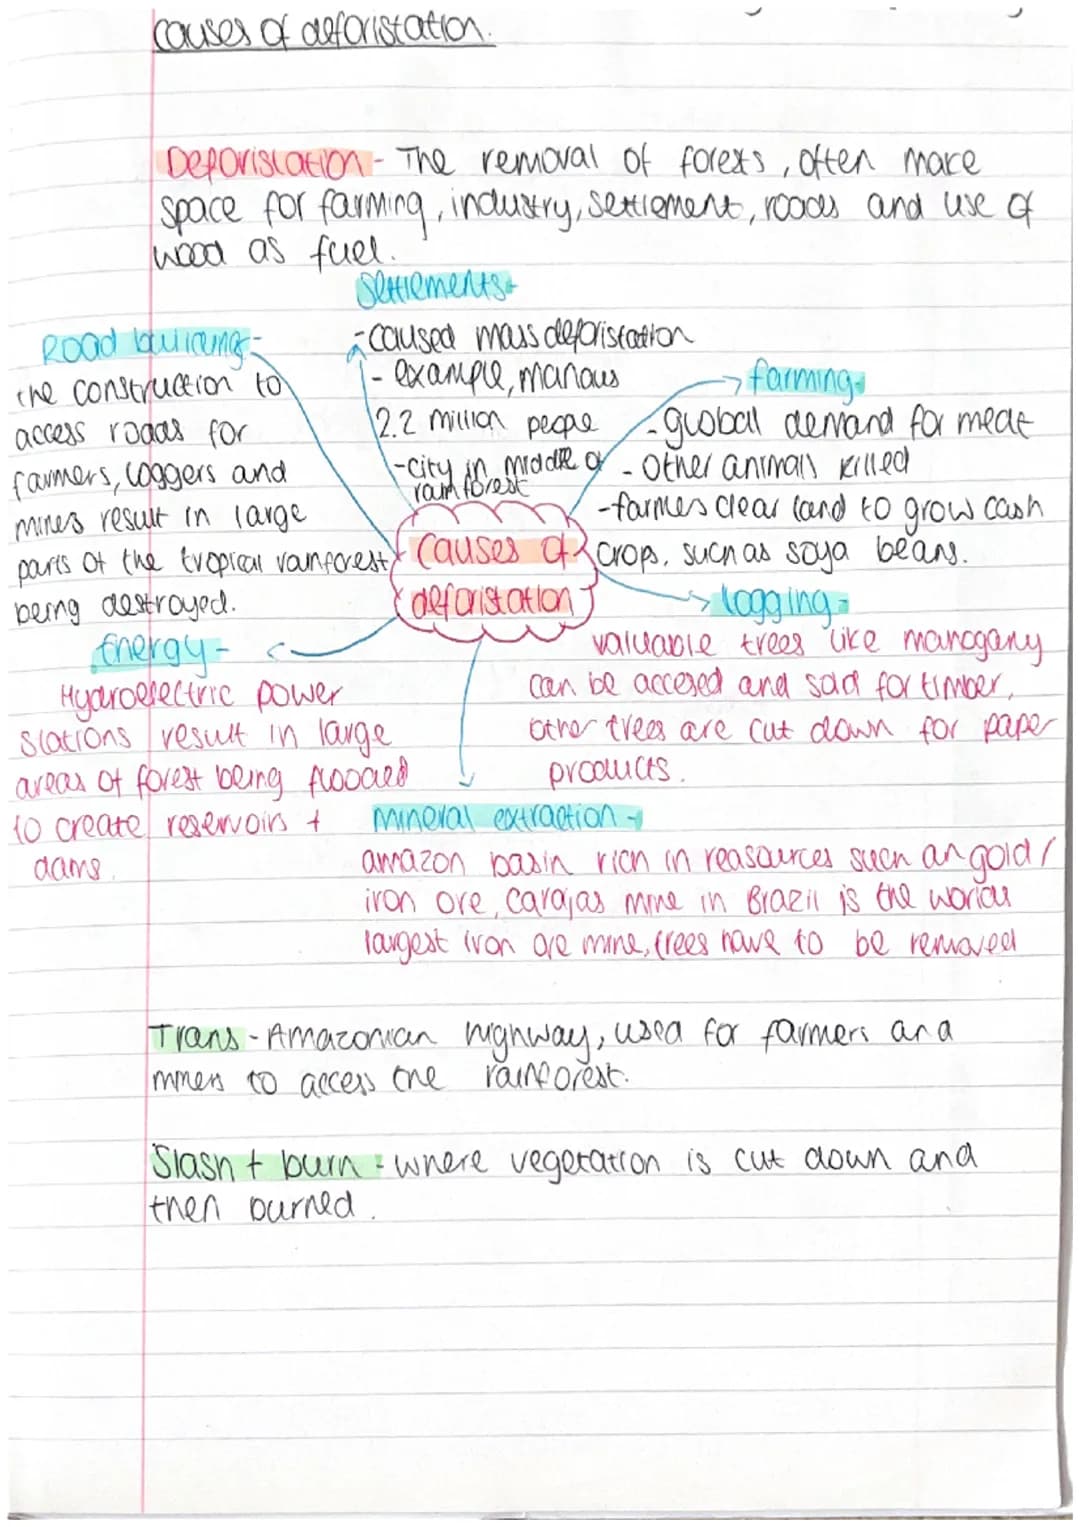 causes of deforistation.
Deforistation - The removal of forests, often make
space for farming, industry, settlement, roads and use of
wood as fuel.
Settlements-
- caused mass deforistation
- example, manaus
2.2 million people
- city in middle of
rainforest
Road building -
the construction to
access roads for
farmers, loggers and
mines result in large
parts of the tropical rainforest
being destroyed.
farming-
- global demand for meat
- other animals killed
- farmes clear land to grow cash
crops, such as soya beans.
causes of
deforistation
logging -
valuable trees like mahogany
can be accesed and sold for timber,
other trees are cut down for paper
products.
Energy -
Hydroelectric power
stations result in large
areas of forest being flooded
to create reservoirs +
dams.
mineral extraction -
amazon basin rich in reasources such an gold/
iron ore, carajas mine in Brazil is the worlds
largest iron ore mine, trees have to be removed
Trans - Amazonian highway, used for farmers and
miners to access the rainforest.
Slash + burn - where vegetation is cut down and
then burned.